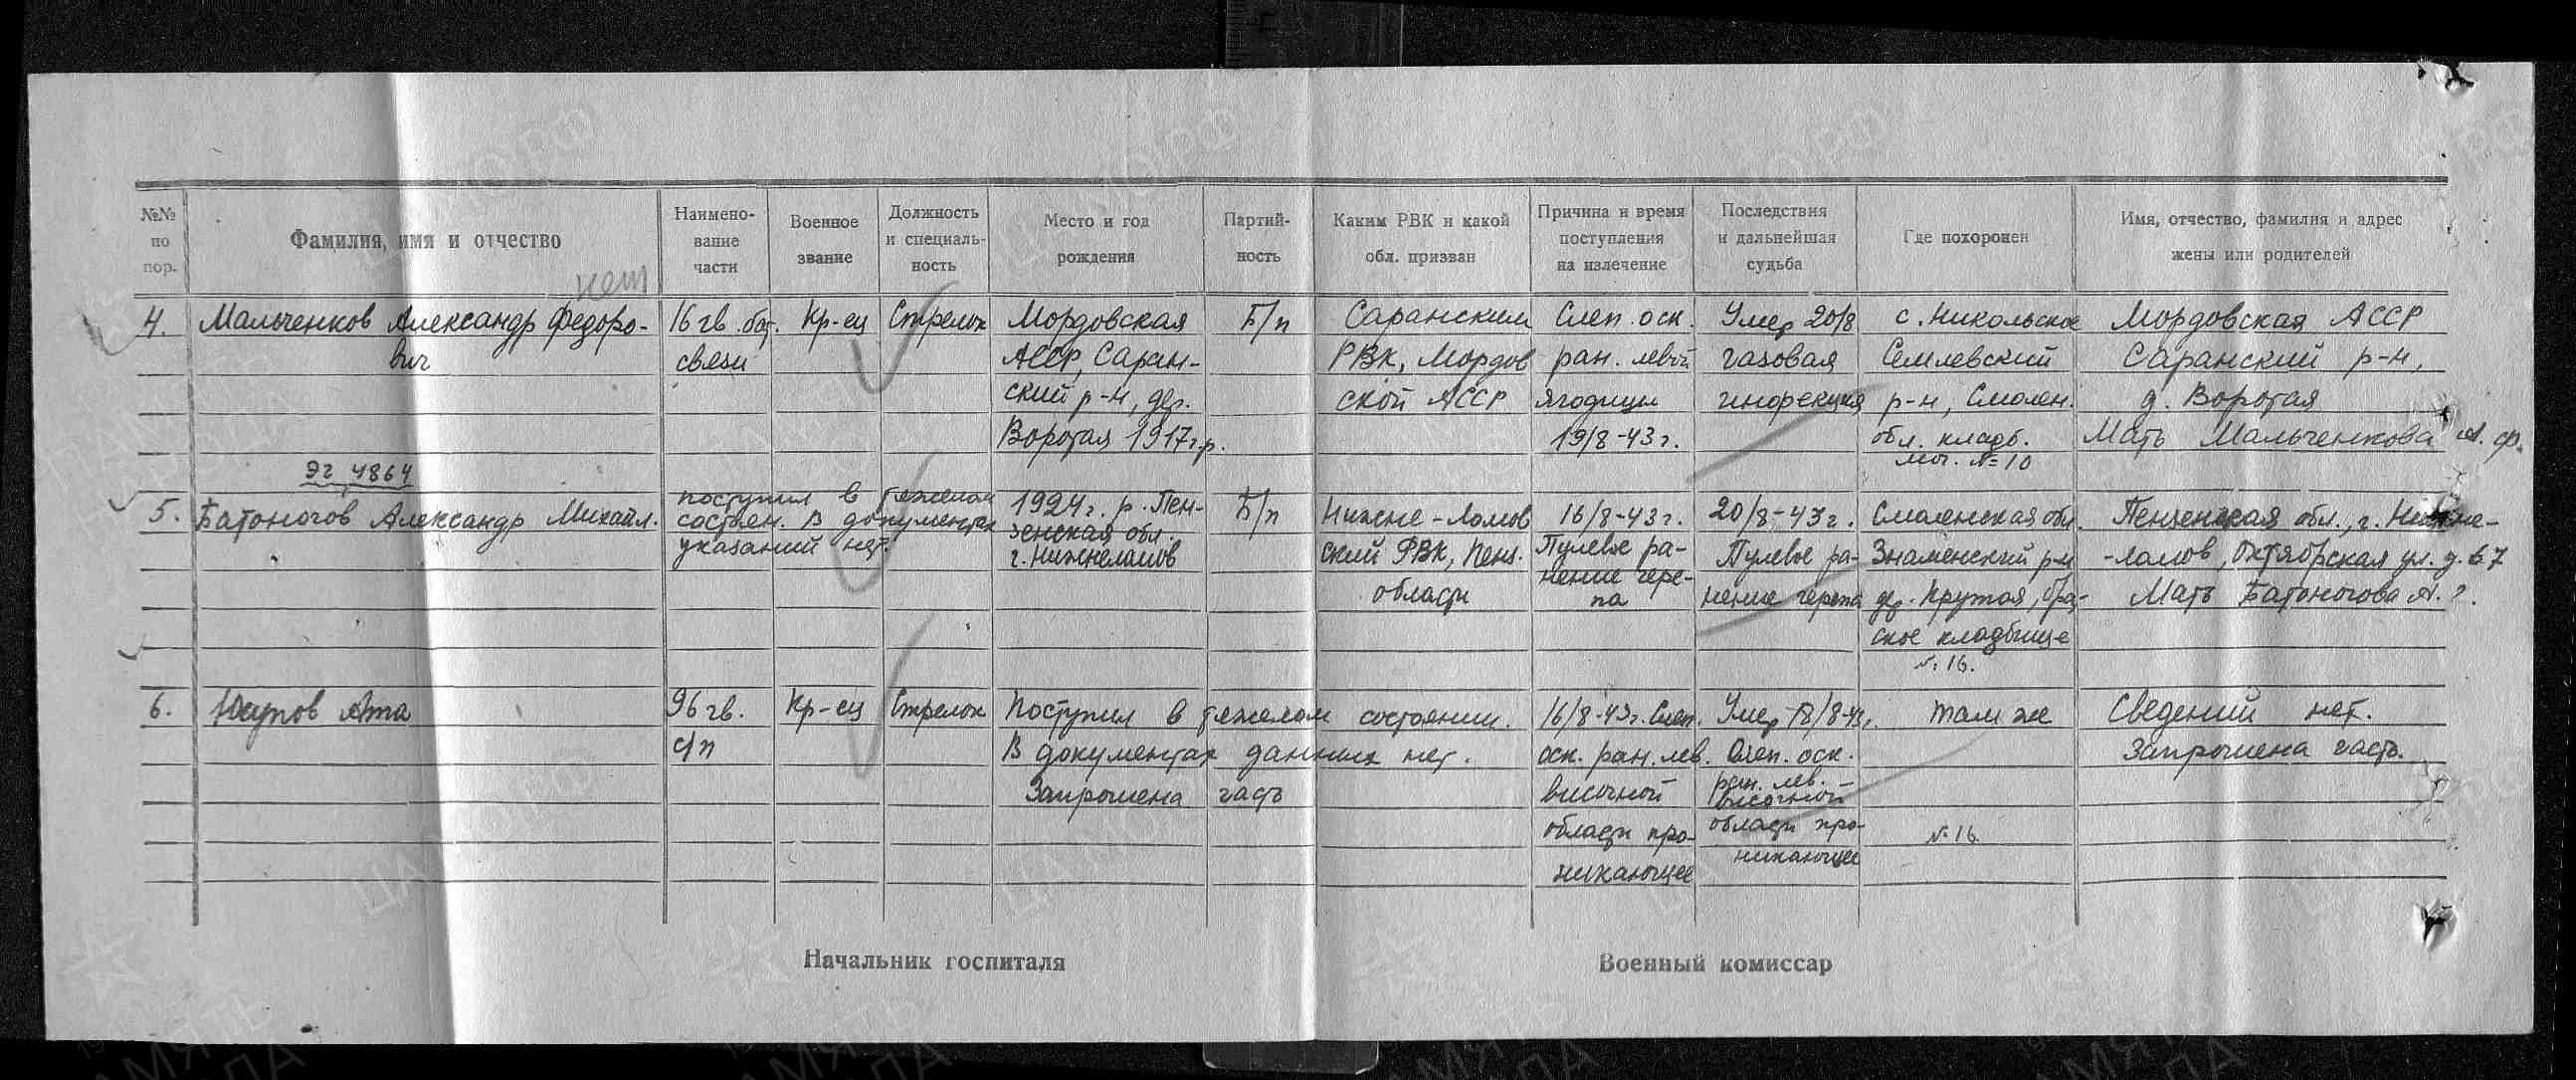 №№ по пор.
Фамилия, имя и отчество
Наимено-
вание
части
Военное
звание
Должность
и специаль-
ность
Место и год
рождения
Партий-
ность
Каким РВК и какой
обл. призван
Причина и время
поступления
на излечение
Последствия
и дальнейшая
судьба
Где похоронен
Имя, отчество, фамилия и адрес
жены или родителей
нет
4.
Мальченков Александр Федоро-
вич
16 гв. бат.
связи
Кр-ец
Стрелок
Мордовская
АССР, Саран-
ский р-н, дер.
Воротая 1917 г.р.
Б/п
Саранским
РВК, Мордов
ской АССР
Слеп. оск.
ран. левой
ягодицы
19/8-43 г.
Умер 20/8
газовая
инфекция
с. Никольское
Семлевский
р-н, Смолен.
обл. кладб.
мог. №10
Мордовская АССР
Саранский р-н,
д. Воротая
Мать Мальченкова А. Ф.
ЭГ 4864
5.
Батоногов Александр Михайл.
поступил в тяжелом
состоян. В документах
указаний нет.
1924 г. р. Пен-
зенская обл.
г. Нижнеламов
Б/п
Нижне-Ламов
ский РВК, Пенз.
области
16/8-43 г.
Пулевое ра-
нение чере-
па
20/8-43 г.
Пулевое ра-
нение черепа
Смоленская обл.
Знаменский р-н
дер. Крутая,
ское кладбище
№ 16.
Пензенская обл., г. Нижне-
-ламов, Октябрская ул. д. 67
Мать Батоногова А. ?.
6.
Юсупов Ата
96 гв.
с/п
Кр-ец
Стрелок
Поступил в тяжелом состоянии.
В документах данных нет.
Запрошена часть
16/8-43 г. Слеп.
оск. ран. лев.
височной
области про-
никающее
Умер 18/8-43 г.
Слеп. оск.
ран. лев.
височной
области про-
никающее
там же
№ 16.
Сведений нет.
Запрошена часть.
Начальник госпиталя
Военный комиссар